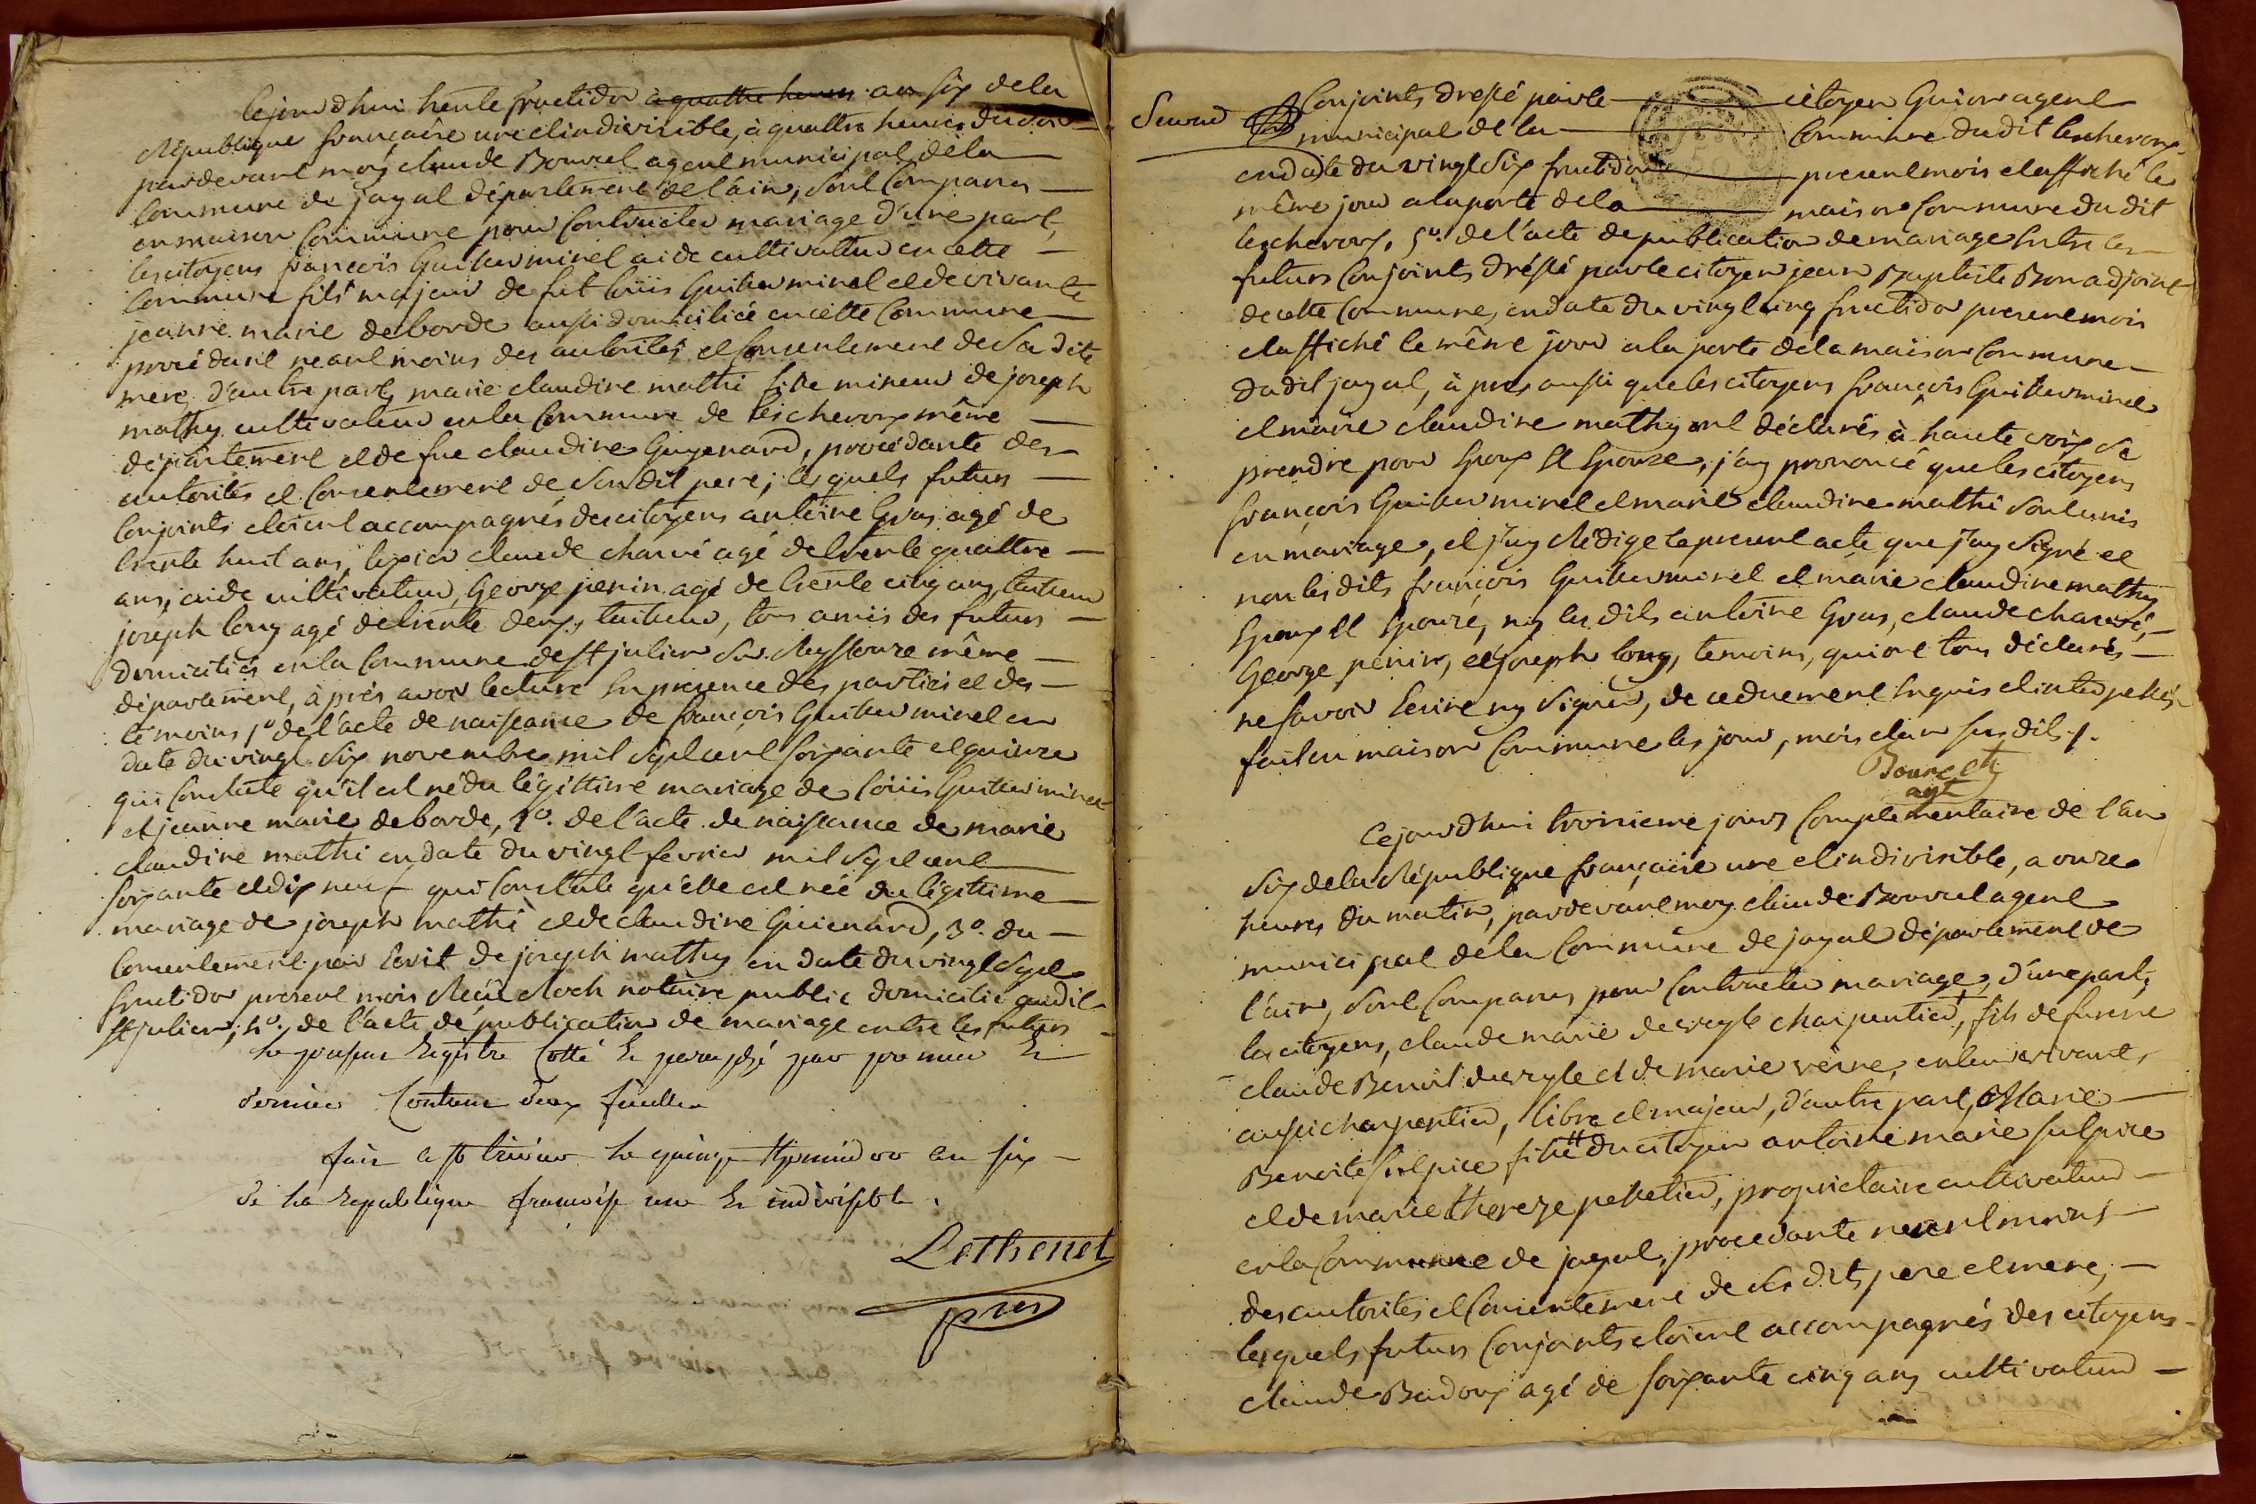 Cejourd'hui trente fructidor à quattre heures an six de la
République françaîse une et indivisible, à quattre heures du soir
pardevant moy claude Bouvret agent municipal de la
Commune de jayat département de l'ain, sont Comparus
en maison Commune pour Contracter mariage d'une part,
les citoyens françois Guillerminet aide cultivatteur en cette
Commune fils majeur de fut loüis Guillerminet et de vivante
jeanne marie deborde aussi domiciliée en cette Commune
procédant neantmoins des autorités et Consentement de Sa dite
mere, d'autre part, marie claudine mathi fille mineure de joseph
mathy cultivateur en la Commune de Lescheroux même
département et de fue claudine Guyenard, procédante des
autorités et Consentement de Son dit pere; lesquels futurs
Conjoints etoient accompagnés des citoyens antoine Gras agé de
trente huit ans, claude charvé agé de trente quattre
ans, aide cultivateur, George penin agé de trente cinq ans, tailleur
joseph long agé de trente deux, tailleur, tous amis des futurs
domiciliés en la Commune de St julien Sur Reyssouze même
département, à près avoir lecture En presence des parties et des
témoins 1° de l'acte de naissance de françois Guillerminet en
date du vingt Six novembre mil Sept cent soixante et quinze
qui Constate qu'il est né du légittime mariage de Loüis Guillerminet
et jeanne marie deborde, 2°. de l'acte de naissance de marie
claudine mathi en date du vingt fevrier mil Sept cent
soixante et dix neuf qui Constate qu'elle est née du légitime
mariage de joseph mathi et de claudine Guienard, 3°. du
Consentement par Ecrit de joseph mathy en date du vingt Sept
fructidor présent mois Reçû Roch notaire public domicilié audit
St julien; 4°. de l'acte de publication de mariage entre les futurs
le present Registre Cotté & paraphé par premier &
dernier Contenu deux feuilles
fait a St trivier le quinze thermidor an six
de la Republique francoise une & indivisible.
Lethenet
pres
Second
Conjoints dressé par le citoyen Guion agent
municipal de la Commune dudit lescheroux
en date du vingt Six fructidor present mois et affiché le
même jour a la porte de la maison Commune dudit
lescheroux, 5°. de l'acte de publication de mariage Entre les
futurs Conjoints dréssé par le citoyen jean Baptiste Bon adjoint
de cette Commune, en date du vingt cinq fructidor present mois
et affiché le même jour a la porte de la maison Commune
dudit jayat, à près aussi que les citoyens françois Guillerminet
et marie claudine mathy ont déclarés à haute voix Se
prendre pour Epoux Et Epouse, j'ay prononcé que les citoyens
françois Guillerminet et marie claudine mathi Sont unis
en mariage, et j'ay Rédigé le present acte que j'ay Signé et
non les dits françois Guillerminet et marie claudine mathy
Epoux Et Epouse, ny les dits antoine Gras, claude charvé,
George penin, et joseph long, temoins, qui ont tous déclarés
ne savoir Ecrire ny Signer, de ce duement Enquis et interpellés
fait en maison Commune les jour, mois et an sus dits /.
Bouvret
agt
Cejourd'hui troisieme jours Complementaire de l'an
Six de la République françaîse une et indivisible, a onze
heures du matin, pardevant moy claude Bouvret agent
municipal de la Commune de jayat département de
l'ain, sont Comparus pour Contracter mariage, d'une part,
les citoyens, claude marie deveyle charpentier, fils de
claude Benoit deveyle et de marie verne, en leur vivant,
aussi charpentier, libre et majeur, d'autre part, Marie
Benoite Sulpice fille du citoyen antoine marie sulpice
et de marie thereze pelletier, propriétaire cultivateur
en la Commune de jayat, procedante neantmoins
des autorités et Consentement de ses dits pere et mere,
lesquels futurs Conjoints etoient accompagnés des citoyens
claude Badoux agé de soixante cinq ans cultivateur